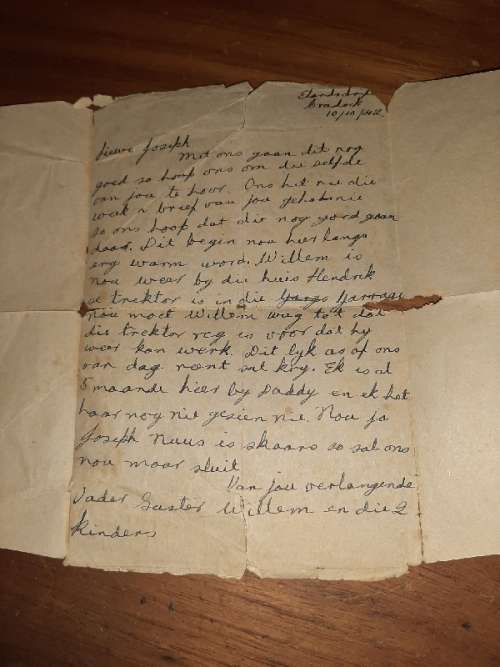 Cradock
10/10/42
Lieve Joseph
Met ons gaan dit nog
goed so hoop ons om die selfde
van jou te hoor. Ons het nie die
week n brief van jou gehad nie
so ons hoop dat die nog goed gaan
daar. Dit begin nou hier langs
erg warm word. Willem is
nou weer by die huis Hendrik
se trektor is in die
nou moet Willem wag tot dat
die trektor reg is voor dat hy
weer kan werk. Dit lyk as of ons
van dag reent sal kry. Ek is al
5 maande hier by Daddy en ek het
haar nog nie gesien nie. Nou ja
Joseph Nuus is skaars so sal ons
nou maar sluit
Van jou verlangende
Vader Suster Willem en die 2
kinders